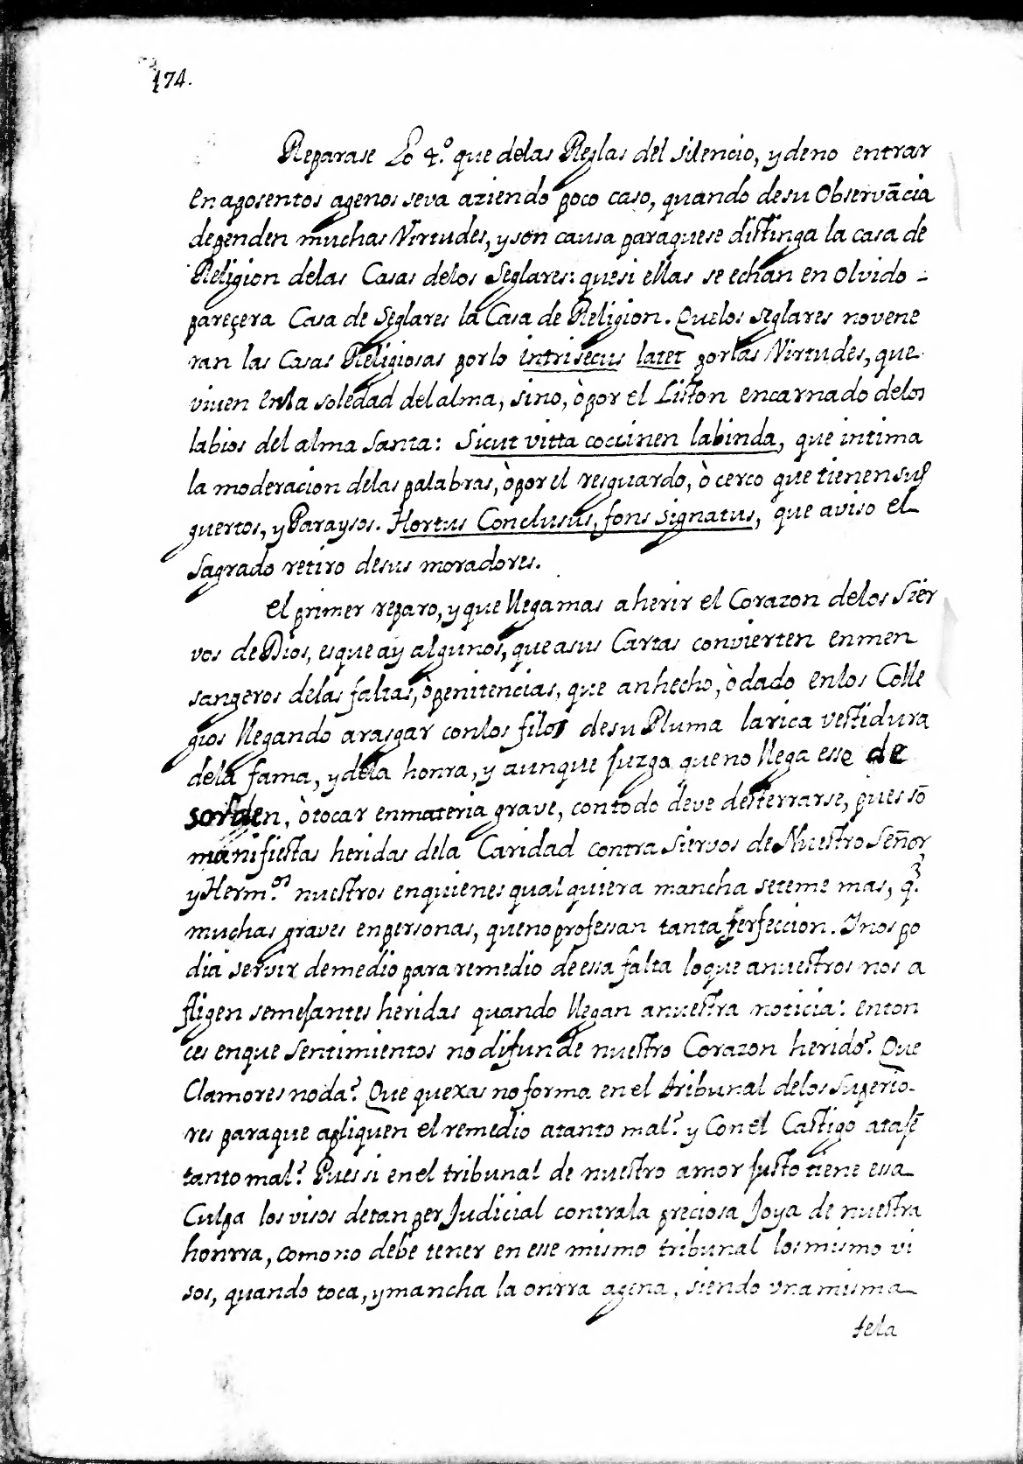 174.
Reparase Lo 4.º que delas Reglas del silencio, y deno entrar
en aposentos agenos seva aziendo poco caso, quando desu Observãcia
dependen muchas Virtudes, y son causa paraquese distinga la casa de
Religion delas Casas delos Seglares: quesi ellas se echan en olvido -
pareçera Casa de Seglares la Casa de Religion. Quelos seglares novene
ran las Casas Religiosas porlo intrisecus latet porlas Virtudes, que
viuen enla soledad del alma, sino, ò por el Liston encarnado delos
labios del alma Santa: Sicut vitta coccinen labinda, que intima
la moderacion delas palabras, ò por el resguardo, ò cerco que tienen sus
guertos, y Paraysos. Hortus Conclusus, fons signatus, que aviso el
Sagrado retiro desus moradores.
el primer reparo, y que llega mas aherir el Corazon delos Sier
vos de Dios, es que ay algunos, que asus Cartas convierten en men
sangeros delas faltas, ò penitencias, que anhecho, ò dado enlos Colle
gios llegando arasgar conlos filos desu Pluma larica vestidura
dela fama, y dela honra, y aunque juzgo que no llega esse de
sorden, ò tocar enmateria grave, contodo deve desterrarse, pues sõ
manifiestas heridas dela Caridad contra Siervos de Nuestro Señor
y Herm.os nuestros enquienes qualquiera mancha seteme mas, q.e
muchas graves enpersonas, queno professan tanta perfeccion. Inos po
dia servir demedio para remedio de essa falta loque anuestros nos a
fligen semejantes heridas quando llegan anuestra noticia: enton
ces enque sentimientos no difunde nuestro Corazon herido? Que
Clamores noda? Que quexas no forma en el tribunal delos Superio-
res paraque apliquen el remedio atanto mal? y Con el Castigo atajẽ
tanto mal? Pues si en el tribunal de nuestro amor justo tiene essa
Culpa los visos detan per Judicial contrala preciosa Joya de nuestra
honrra, como no debe tener en esse mismo tribunal los mismo vi
sos, quando toca, y mancha la onrra agena, siendo vna misma
tela